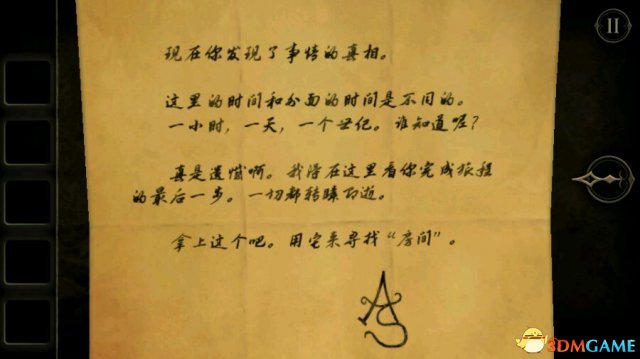 现在你发现了事情的真相。
这里的时间和外面的时间是不同的。
一小时，一天，一个世纪。谁知道呢？
真是遗憾啊。我将在这里看你完成旅程
的最后一步。一切都转瞬即逝。
拿上这个吧。用它来寻找“房间”。
AS
3DMGAME